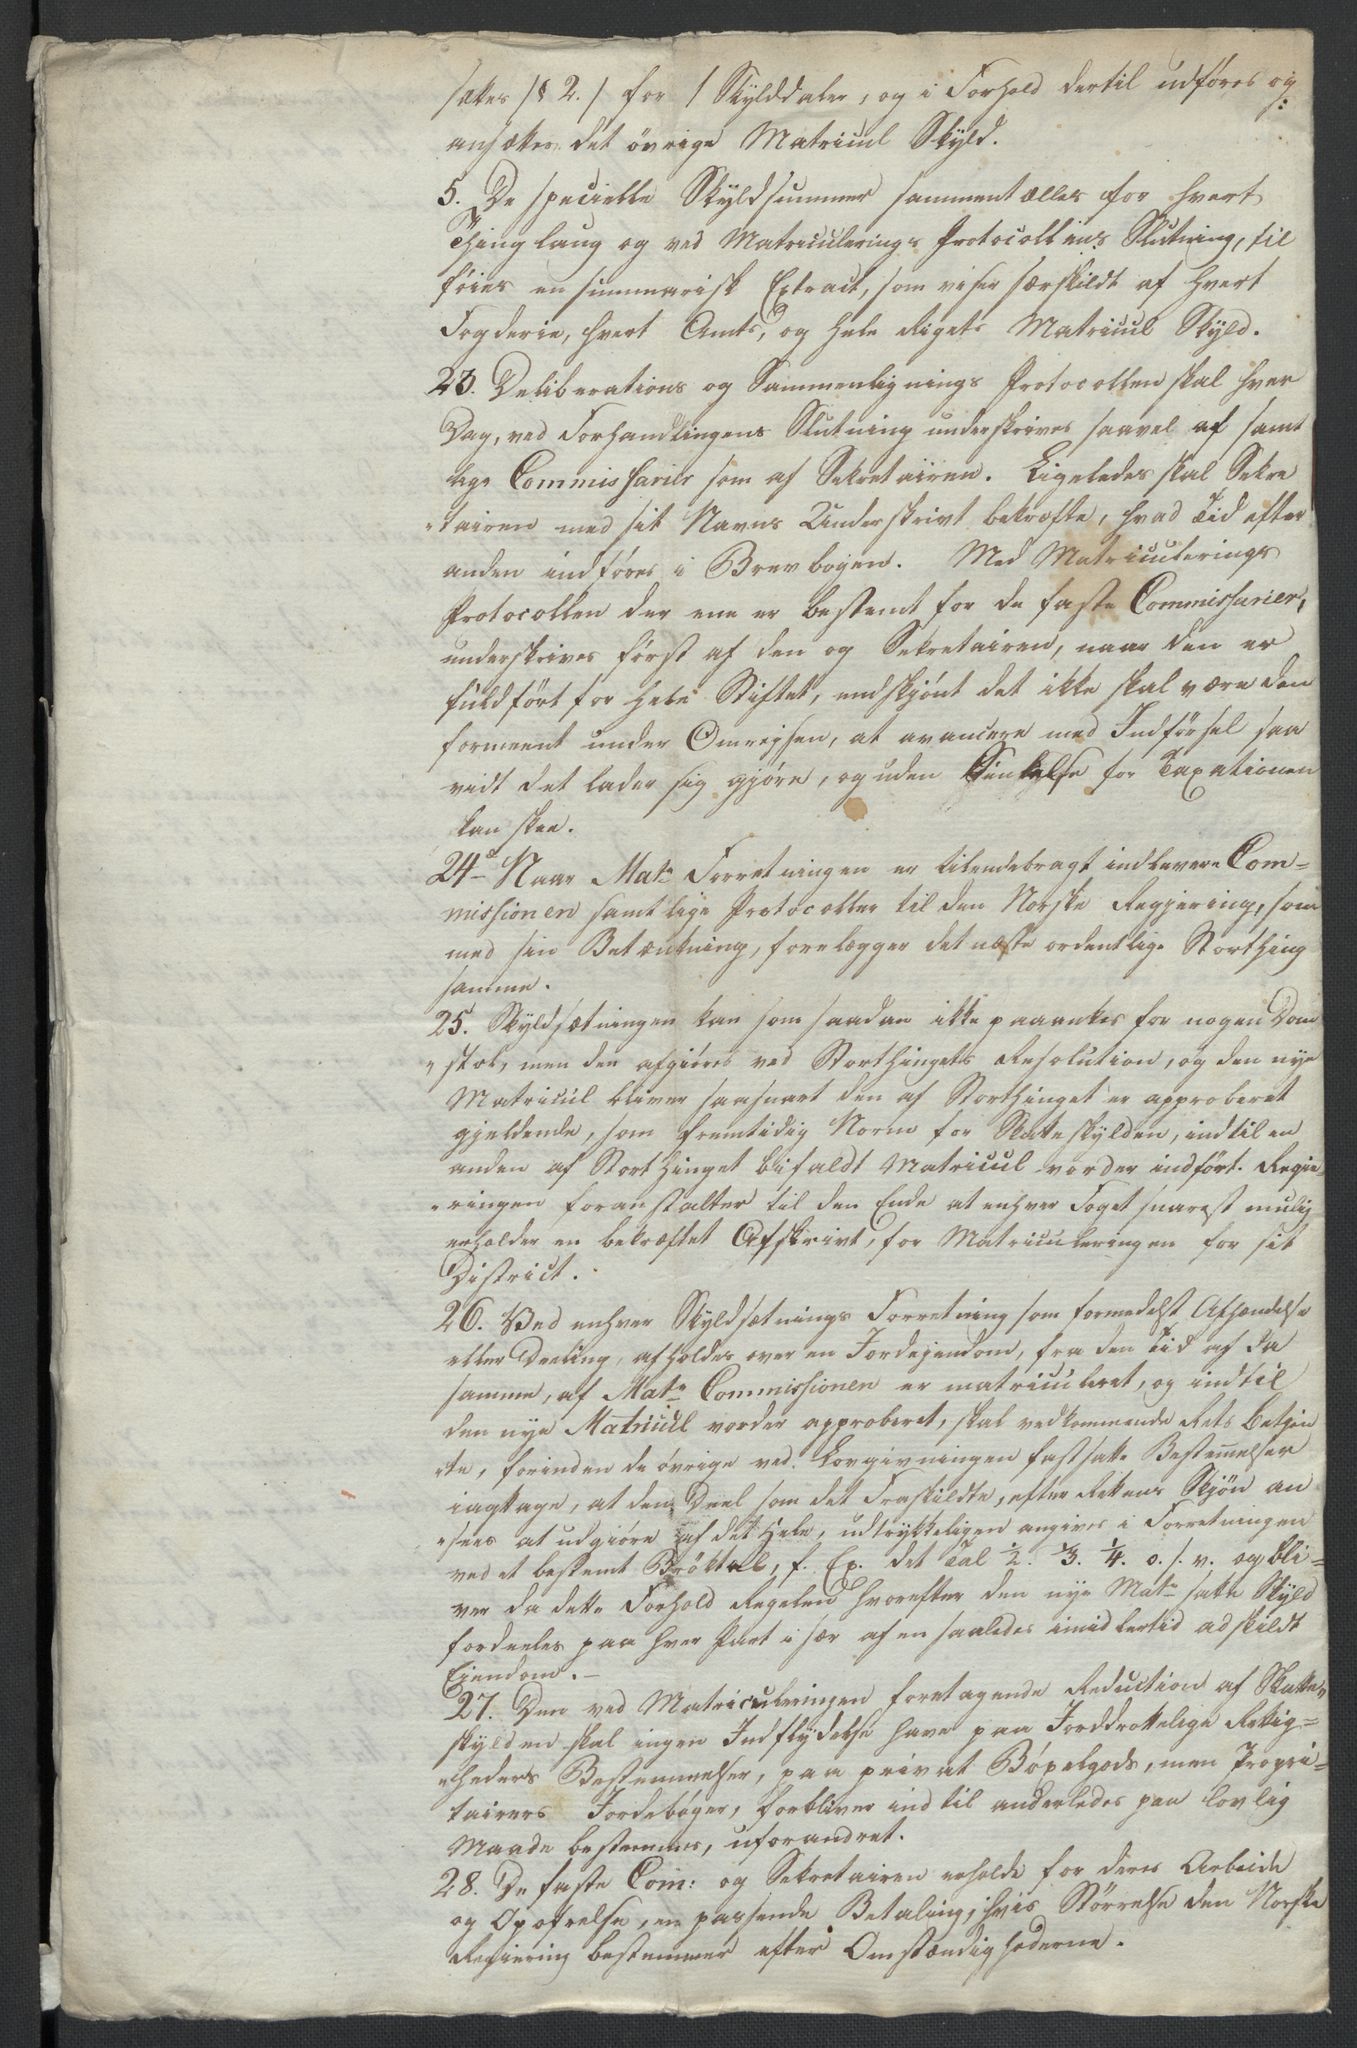 sættes /§ 2./ for 1 Skylddaler, og i Forhold dertil udføres og
ansættes det øvrige Matricul Skyld.
5. De specielle Skyldsummer sammentælles for hvert
Thinglaug og ved Matriculerings Protocollens Slutning, til
føies en summarisk Extract, som viser særskildt af hvert
Fogderie, hvert Amts, og hele Rigets Matricul Skyld.
23. Deliberations og Sammenlignings Protocollen skal hver
Dag, ved Forhandlingens Slutning underskrives saavel af samt
lige Commissarier som af Sekretairen. Ligeledes skal Sekre
"tairen med sit Navns Underskrivt bekræfte, hvad Tid efter
anden indføres i Brevbogen. Med Matriculerings
Protocollen der ene er bestemt for de faste Commissarier,
underskrives først af den og Sekretairen, naar den er
fuldført for hele Stiftet, endskjønt det ikke skal være dem
formeent under Omreisen, at avancere med Indførsel saa
vidt det lader sig gjøre, og uden Sinkelse for Taxationen
kan skee.
24d Naar Mats Forretningen er tilendebragt indlevere Com-
missionen samtlige Protocoller til den Norske Regjering, som
med sin Betænkning, forelægger det næste ordentlige Storthing
samme.
25. Skyldsætningen kan som saadan ikke paaankes for nogen Dom
"stol, men den afgiøres ved Storthingets Resolution, og den nye
Matricul bliver saasnart den af Storthinget er approberet
gjeldende, som fremtidig Norm for Skatteskylden, indtil en
anden af Storthinget bifaldt Matricul vorder indført. Regie-
"ringen foranstalter til den Ende at enhver Foget snarest mulig
erholder en bekræftet Afskrivt, for Matriculeringen for sit
District.
26. Ved enhver Skyldsætnings Forretning som formedelst Afhændelse
eller Deeling, afholdes over en Jordejendom, fra den Tid af da
samme, af Mats Commissionen er matriculeret, og indtil
den nye Matricul vorder approberet, skal vedkommende Rets Betjen
"te, forinden de øvrige ved Lovgivningen fastsatte Bestemelser
iagttage, at den Deel som det Fraskildte, efter Rettens Skjøn an
"sees at udgiøre af det Hele, udtrykkeligen angives i Forretningen
ved et bestemt Brøktal, f. Ex. det Tal ½. ⅓. ¼. o. s. v. og bli-
ver da dette Forhold Regelen hvorefter den nye Mats satte Skyld
fordeeles paa hver Part i sær af en saaledes imidlertid adskildt
Eiendom.-
27. Den ved Matriculeringen foretagende Reduction af Skatte-
skylden skal ingen Indflydelse have paa Jorddrottelige Rettig-
"heders Bestemmelser, paa privat Bøxelgods, men Propri-
tairers Jordebøger, forbliver indtil anderledes paa lovlig
Maade bestemmes, uforandret.
28. De faste Com: og Sekretairen erholde for deres Arbeide
og Opofrelse, en passende Betaling, hvis Størrelse den Norske
Regiering bestemmer efter Omstændighederne.